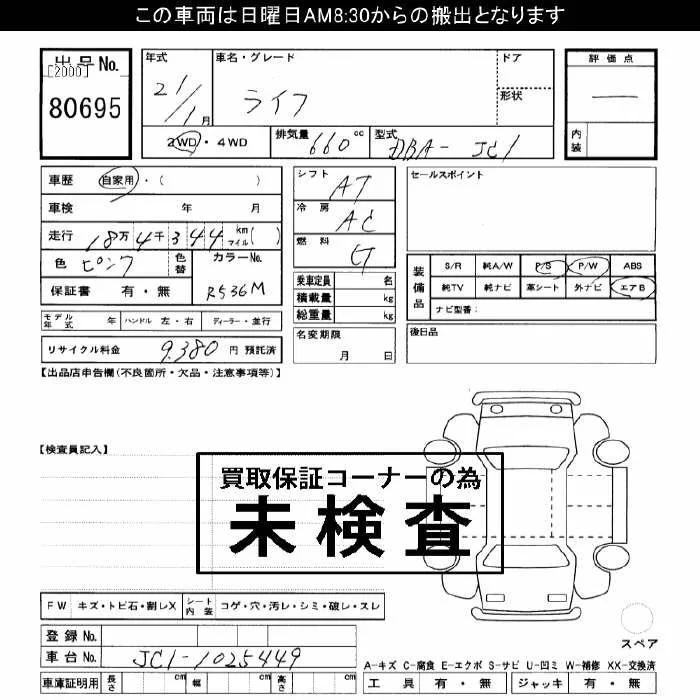 この車両は日曜日AM8:30からの搬出となります
出品No.
[2000]
80695
年式
21/1月
車名・グレード
ライフ
ドア
形状
2WD・4WD
排気量 660 cc
型式 DBA-JC1
評価点
—
内装
車歴 自家用・( )
車検 年 月
走行 18万4千344 km マイル( )
色 ピンク 色替 カラーNo. R536M
保証書 有・無
シフト AT
冷房 AC
燃料 G
乗車定員 名
積載量 kg
総重量 kg
セールスポイント
装備品
S/R 純A/W P/S P/W ABS
純TV 純ナビ 革シート 外ナビ エアB
ナビ型番:
モデル年式 年 ハンドル 左・右 ディーラー・並行
名変期限 月 日
後日品
リサイクル料金 9,380 円 預託済
【出品店申告欄(不良箇所・欠品・注意事項等)】
【検査員記入】
買取保証コーナーの為
未検査
FW キズ・トビ石・割レX シート内装 コゲ・穴・汚レ・シミ・破レ・スレ
スペア
登録No.
車台No. JC1-1025449
A-キズ C-腐食 E-エクボ S-サビ U-凹ミ W-補修 XX-交換済
車庫証明用 長さ cm 幅 cm 高さ cm
工具 有・無 ジャッキ 有・無